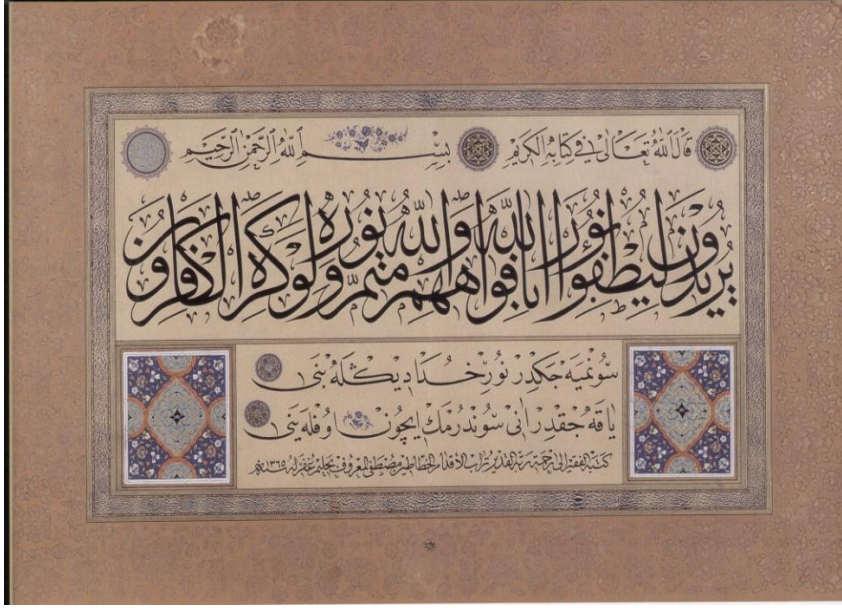 قَالَ اللهُ تَعَالَى فِي كِتَابِهِ الْكَرِيمِ بِسْمِ اللهِ الرَّحْمٰنِ الرَّحِيمِ
يُرِيدُونَ لِيُطْفِؤُا نُورَ اللهِ بِأَفْوَاهِهِمْ وَاللهُ مُتِمُّ نُورِهِ وَلَوْ كَرِهَ الْكَافِرُونَ
سونميه جكدر نور خدا ديكله بنى
ياقه جقدر انى سوندرمك ايچون اوفله ينى
كتبه الفقير الى رحمة ربه القدير تراب الأقدام الخطاطين مصطفى المعروف بحليم غفر له سنه ١٣٦٥